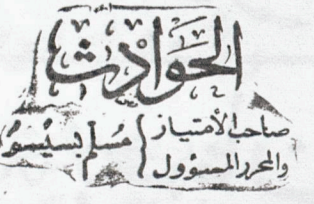 الحَوَادِث
صاحب الأمتياز
والمحرر المسؤول
مُسلم بسيسو